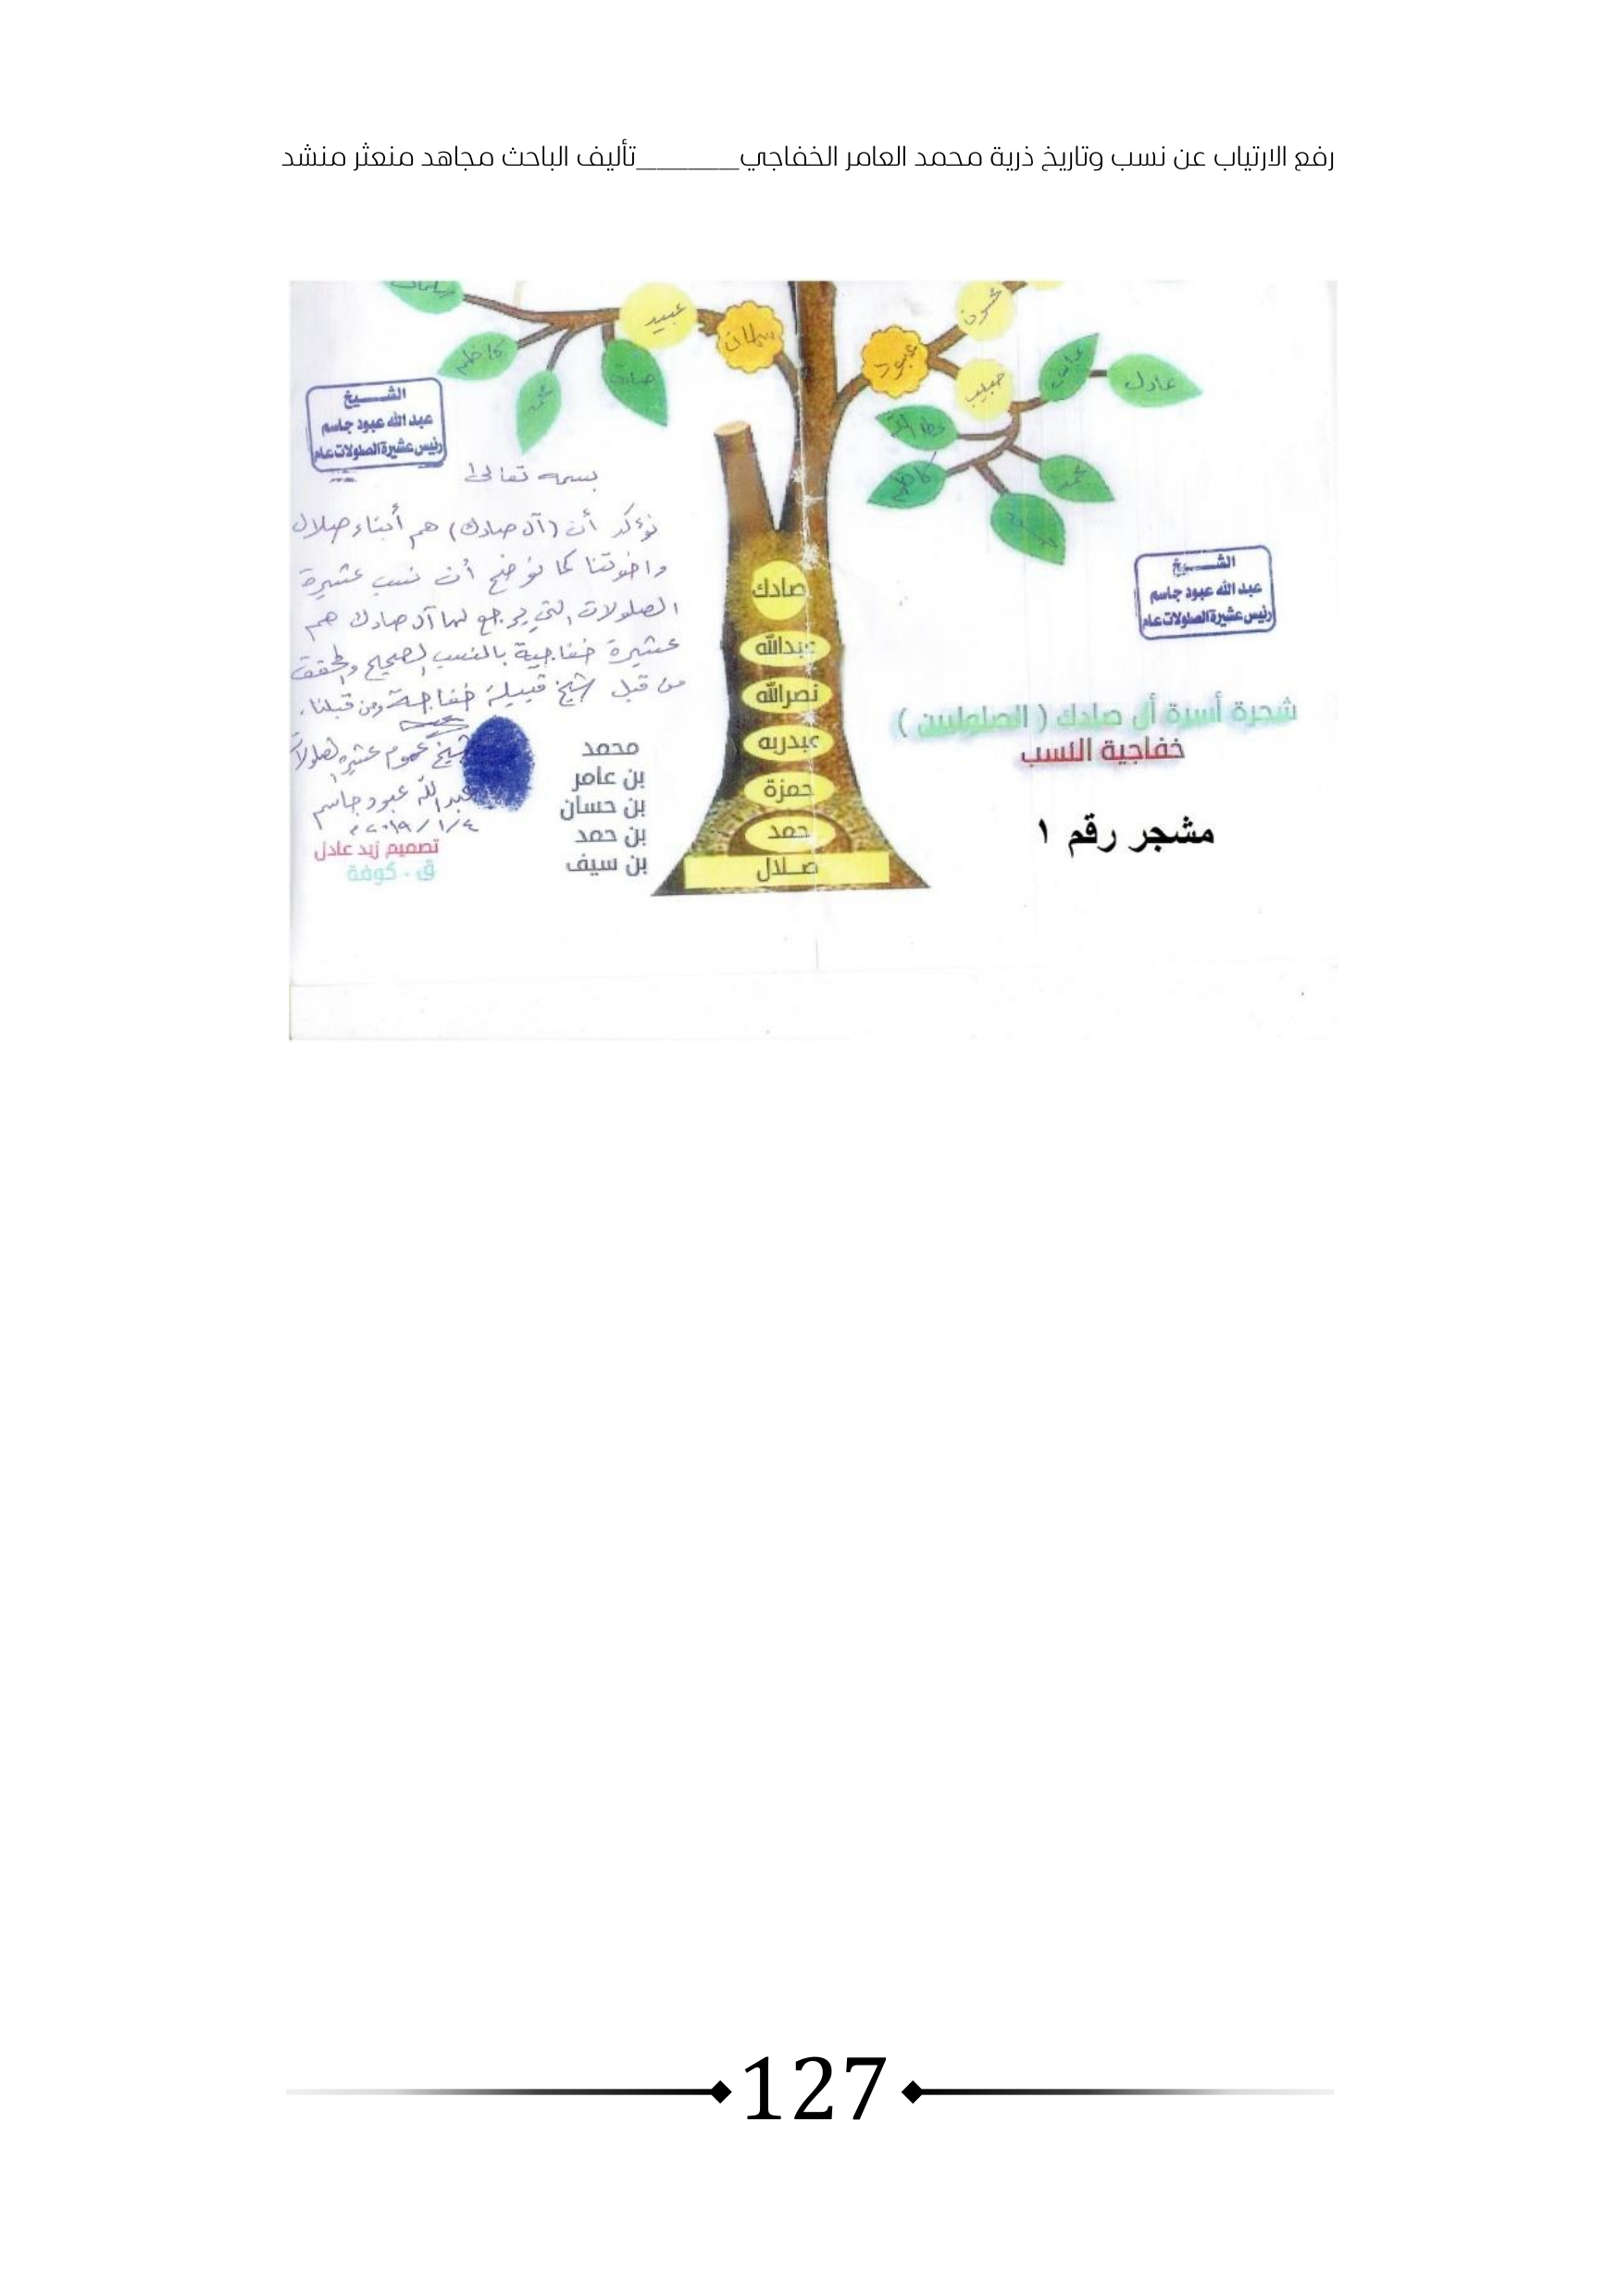 رفع الارتياب عن نسب وتاريخ ذرية محمد العامر الخفاجي________تأليف الباحث مجاهد منعثر منشد
سلمان
عبيد
كاظم
محمد
صادق
عبود
حسون
حبيب
عباس
عادل
عطا الله
كاظم
محمد
الشـــيخ
عبد الله عبود جاسم
رئيس عشيرة الصلولات عام
بسمه تعالى
نؤكد أن (آل صادك) هم أبناء صلال
واخوتنا كما نوضح أن نسب عشيرة
الصلولات التي يرجع لها آل صادك هم
عشيرة خفاجية بالنسب الصحيح والمحقق
من قبل شيخ قبيلة خفاجة ومن قبلنا .
شيخ عموم عشيرة الصلولات
عبد الله عبود جاسم
٢٠١٩/١/٤م
تصميم زيد عادل
ق . كوفة
محمد
بن عامر
بن حسان
بن حمد
بن سيف
صادك
عبدالله
نصرالله
عبدربه
حمزة
حمد
صـلال
الشـــيخ
عبد الله عبود جاسم
رئيس عشيرة الصلولات عام
شجرة أسرة أل صادك ( الصلوليين )
خفاجية النسب
مشجر رقم ١
127